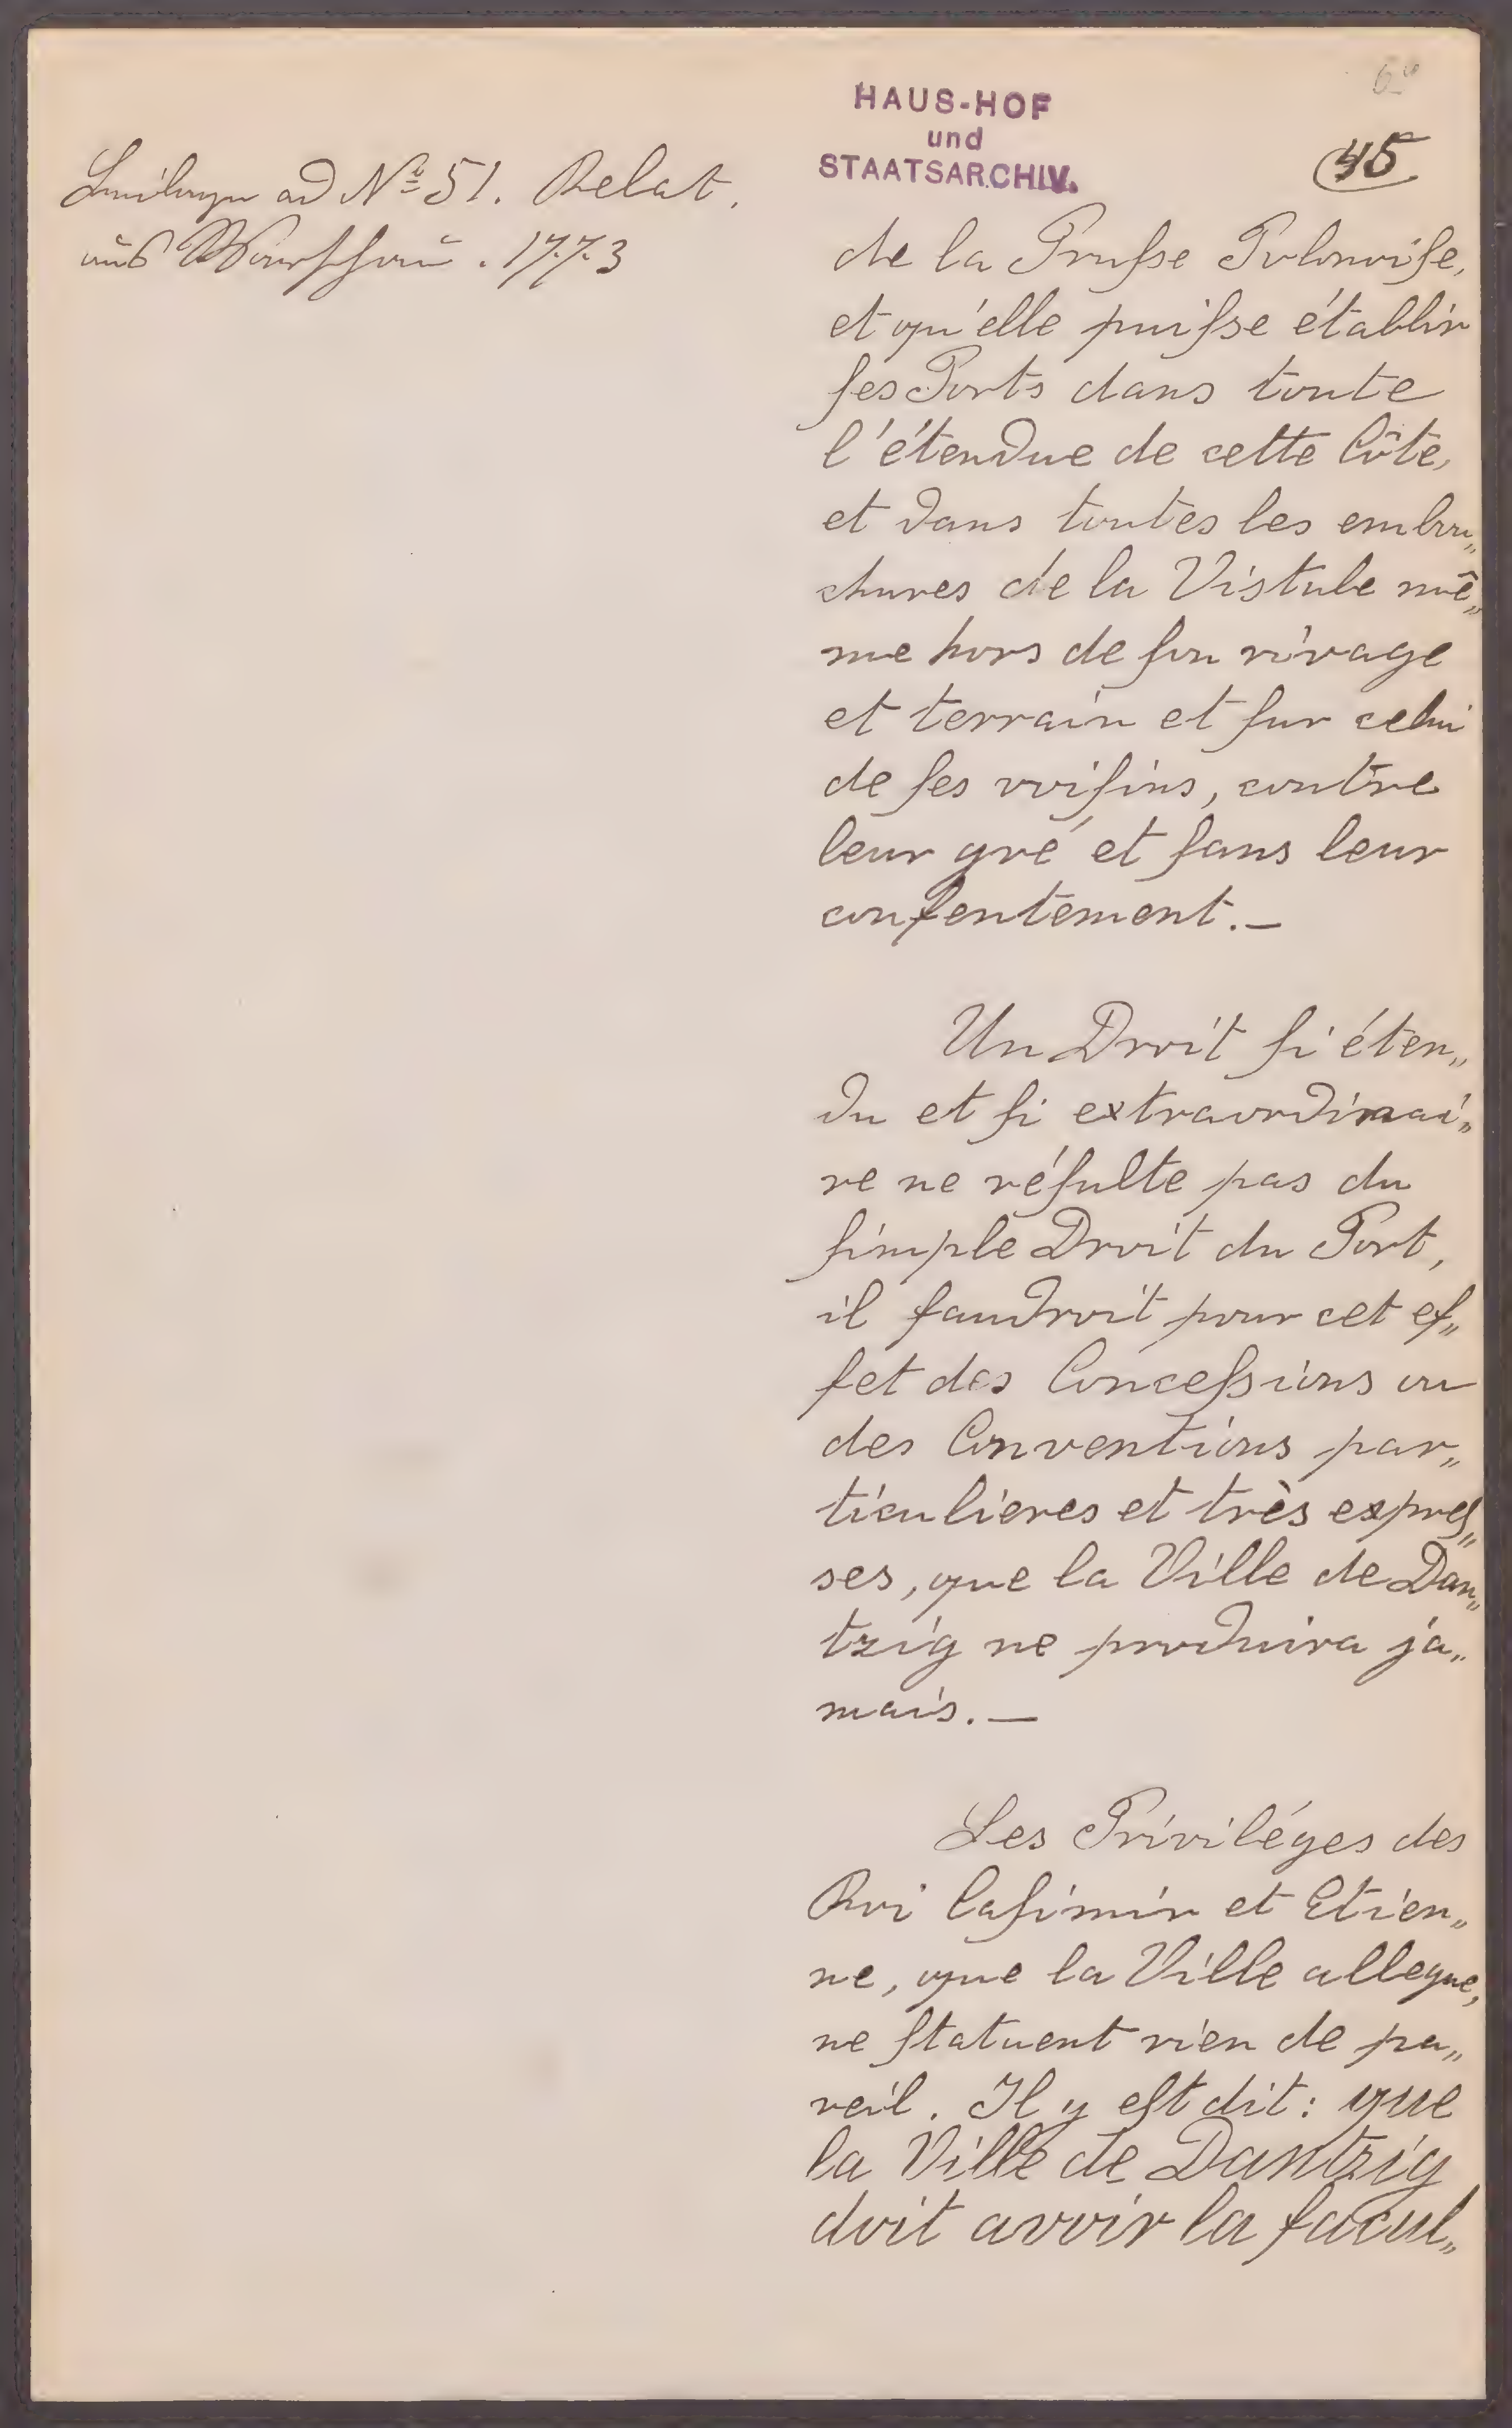 HAUS-HOF
und
STAATSARCHIV.
45
Beilagen ad Nº 51. Relat.
aus Warschau. 1773
de la Prusse Polonoise,
et qu'elle puisse établir
ses Ports dans toute
l'étendue de cette Côte,
et dans toutes les embou„
chures de la Vistule mê„
me hors de son rivage
et terrain et sur celui
de ses voisins, contre
leur gré et sans leur
consentement.—
Un Droit si éten„
du et si extraordinai„
re ne résulte pas du
simple Droit du Port,
il faudroit pour cet ef„
fet des Concessions ou
des Conventions par„
ticulieres et très expres„
ses, que la Ville de Dan„
tzig ne produira ja„
mais.—
Les Priviléges des
Roi Casimir et Etien„
ne, que la Ville allegue,
ne statuent rien de pa„
reil. Il y est dit: que
la Ville de Dantzig
doit avoir la facul„